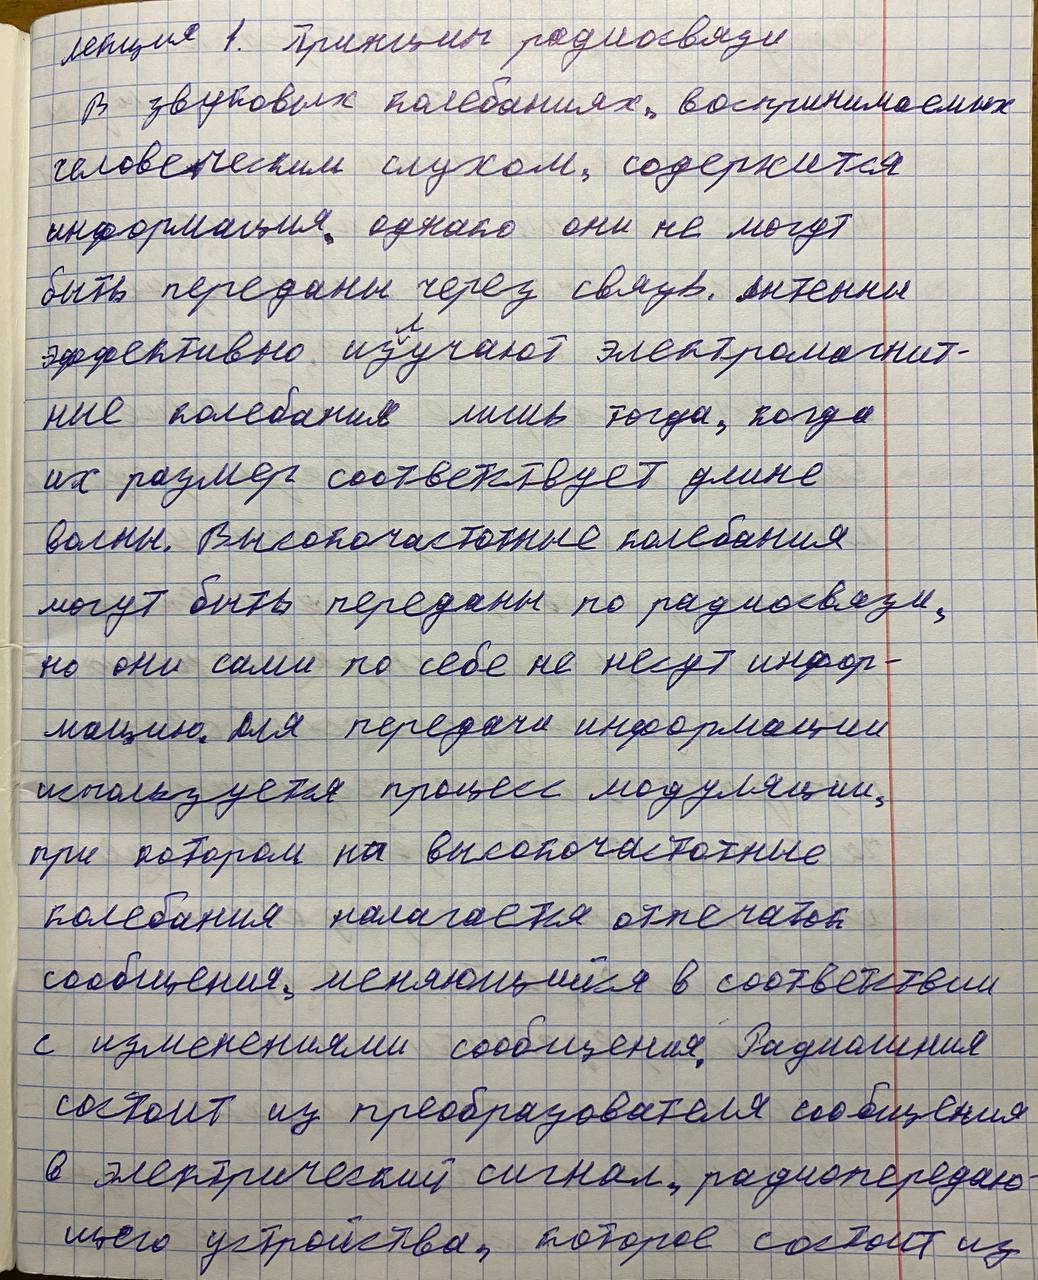 Лекция 1. Принцип радиосвязи
В звуковых колебаниях, воспринимаемых
человеческим слухом, содержится
информация, однако они не могут
быть переданы через связь. Антенны
эффективно излучают электромагнит-
ные колебания лишь тогда, когда
их размер соответствует длине
волны. Высокочастотные колебания
могут быть переданы по радиосвязи,
но они сами по себе не несут инфор-
мацию. Для передачи информации
используется процесс модуляции,
при котором на высокочастотные
колебания налагается отпечаток
сообщения, меняющийся в соответствии
с изменениями сообщения. Радиолиния
состоит из преобразователя сообщения
в электрический сигнал, радиопередаю-
щего устройства, которое состоит из